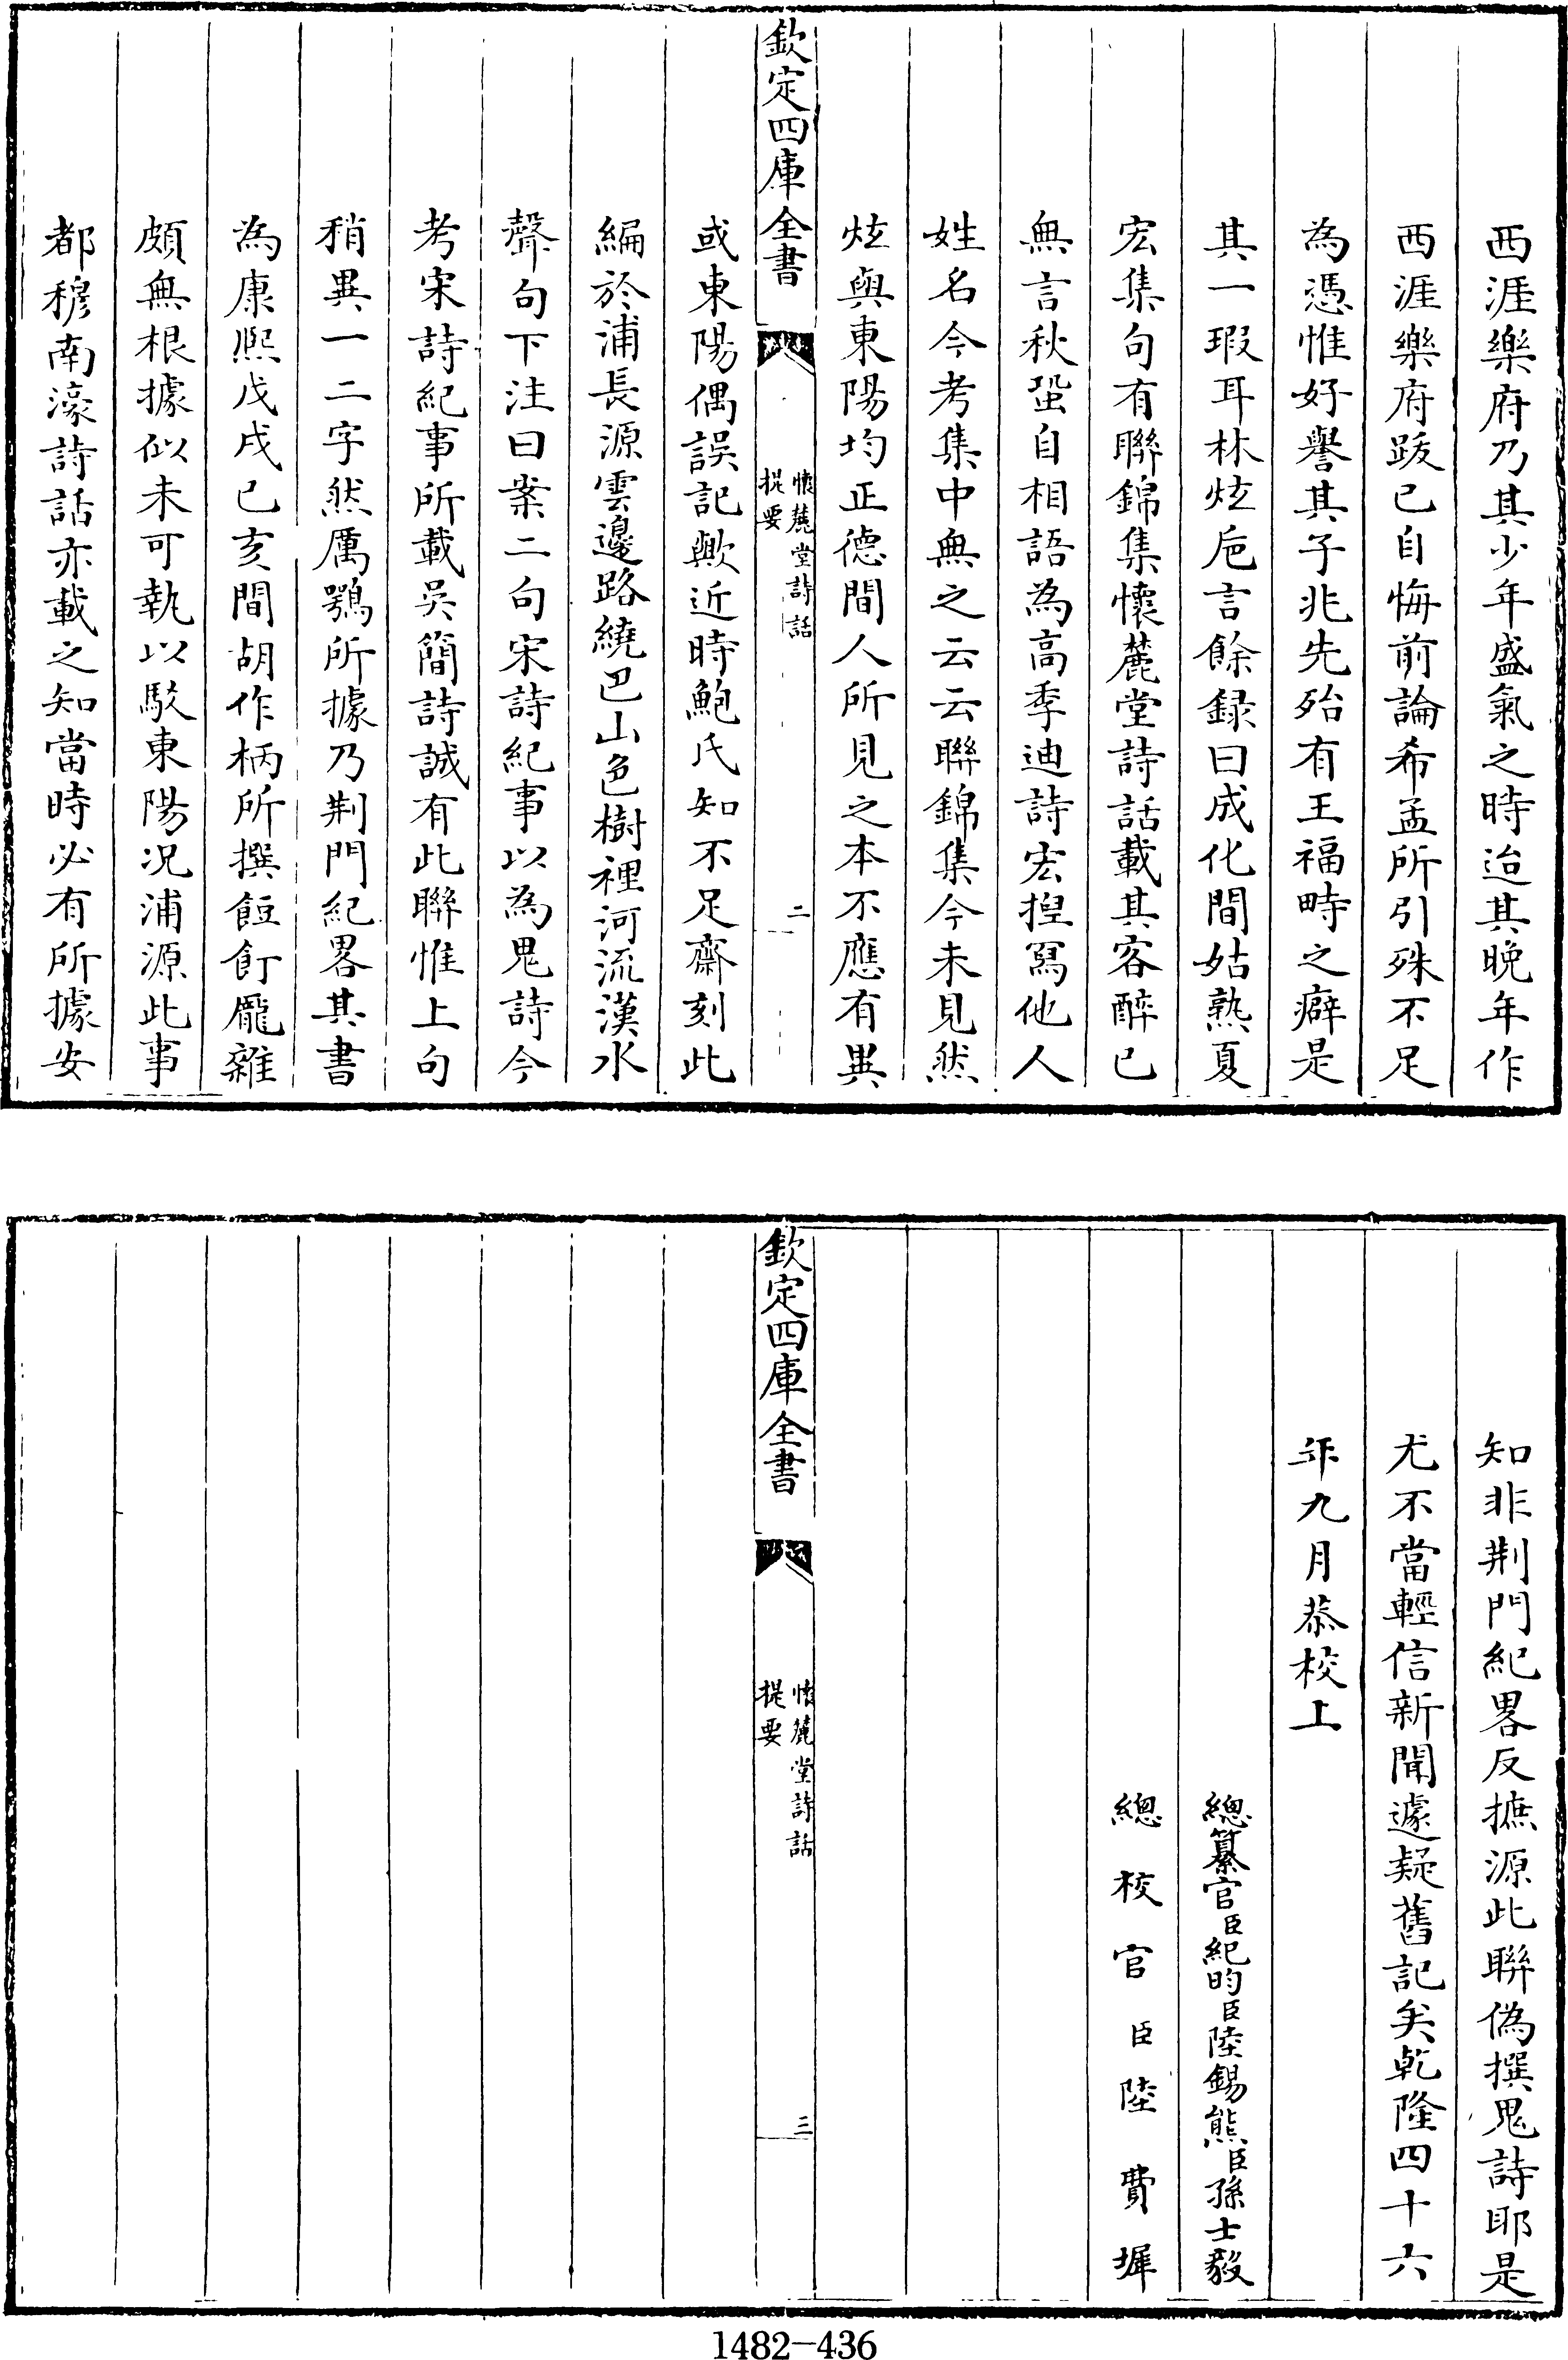 西涯樂府乃其少年盛氣之時迨其晚年作
西涯樂府跋已自悔前論希孟所引殊不足
為憑惟好譽其子兆先殆有王福畤之癖是
其一瑕耳林炫巵言餘録曰成化間姑熟夏
宏集句有聯錦集懷麓堂詩話載其客醉已
無言秋蛩自相語為高季迪詩宏揑冩他人
姓名今考集中無之云云聯錦集今未見然
炫與東陽均正德間人所見之本不應有異
欽定四庫全書
懷麓堂詩話
提要
二
或東陽偶誤記歟近時鮑氏知不足齋刻此
編於浦長源雲邊路繞巴山色樹裡河流漢水
聲句下注曰案二句宋詩紀事以為鬼詩今
考宋詩紀事所載吳簡詩誠有此聯惟上句
稍異一二字然厲鶚所據乃荆門紀畧其書
為康熙戊戌已亥間胡作柄所撰餖飣龎雜
頗無根據似未可執以駁東陽况浦源此事
都穆南濠詩話亦載之知當時必有所據安
知非荆門紀畧反摭源此聯偽撰鬼詩耶是
尤不當輕信新聞遽疑舊記矣乾隆四十六
年九月恭校上
總纂官臣紀昀臣陸錫熊臣孫士毅
總校官臣陸費墀
欽定四庫全書
懷麓堂詩話
提要
三
1482-436